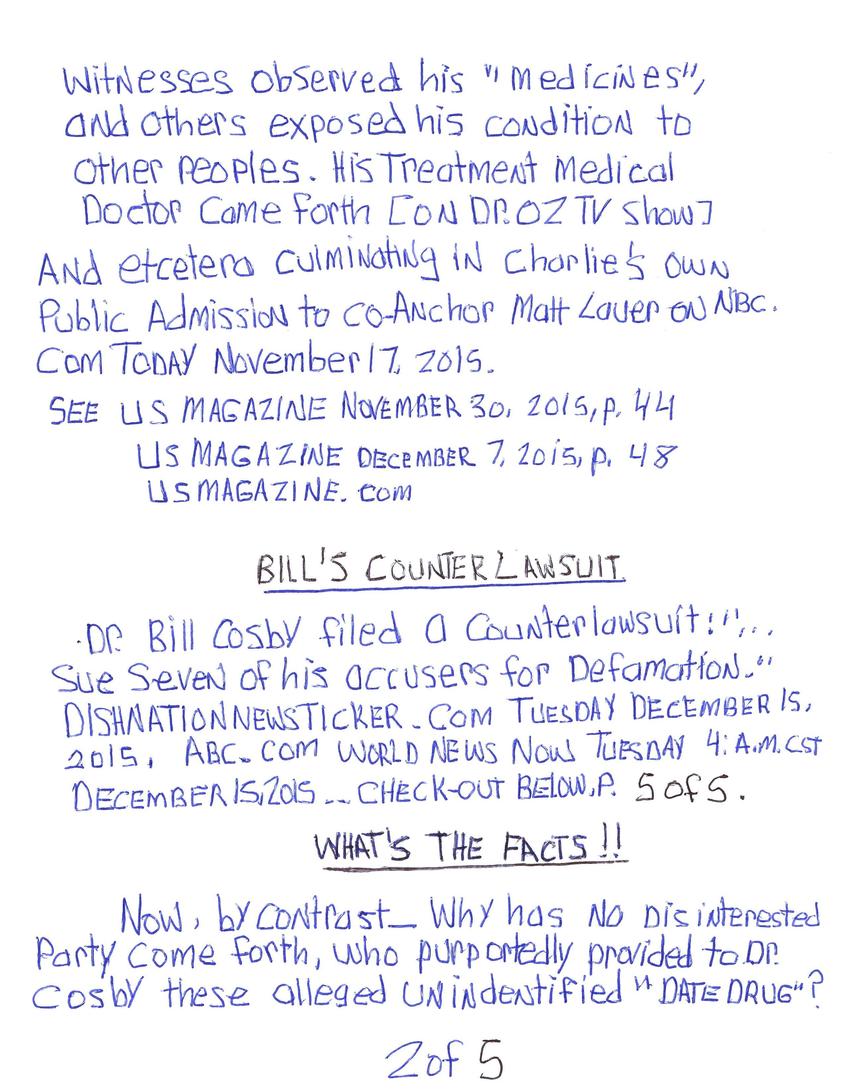 Witnesses observed his "medicines",
and others exposed his condition to
other peoples. His Treatment Medical
Doctor Came forth [ON DR. OZ TV Show]
And etcetera culminating in Charlie's own
Public Admission to Co-Anchor Matt Lauer on NBC.
Com TODAY November 17, 2015.
SEE US MAGAZINE NOVEMBER 30, 2015, p. 44
US MAGAZINE DECEMBER 7, 2015, p. 48
USMAGAZINE.com
BILL'S COUNTER LAWSUIT
·Dr. Bill Cosby filed a Counterlawsuit: "...
Sue Seven of his accusers for Defamation."
DISHNATIONNEWSTICKER.COM TUESDAY DECEMBER 15,
2015, ABC.COM WORLD NEWS NOW TUESDAY 4: A.M. CST
DECEMBER 15, 2015 ... CHECK-OUT BELOW, P. 5 of 5.
WHAT'S THE FACTS!!
Now, by contrast— Why has no disinterested
Party come forth, who purportedly provided to Dr.
Cosby these alleged UNindentified "DATE DRUG"?
2 of 5